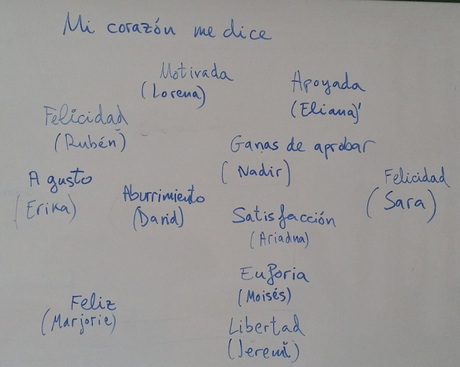 Mi corazón me dice
Motivada
(Lorena)
Apoyada
(Eliana)
Felicidad
(Rubén)
Ganas de aprobar
(Nadir)
A gusto
(Erika)
Aburrimiento
(David)
Felicidad
(Sara)
Satisfacción
(Ariadna)
Euforia
(Moisés)
Feliz
(Marjorie)
Libertad
(Jeremi)